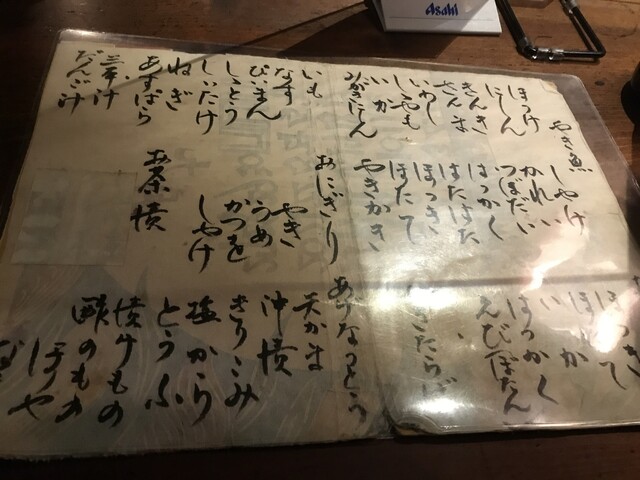 Asahi
やき魚
ほっけ
にしん
きんき
さんま
いわし
ししゃも
いか
みがきにしん
しゃけ
かれい
つぼだい
はっかく
はたはた
ほっき
ほたて
やきかき
いも
なす
ぴーまん
ししとう
しいたけ
ねぎ
あすぱら
三平汁
だんご汁
おにぎり
やき
うめ
かつを
しゃけ
お茶漬
ほっき
はっかく
えびぼたん
あげなっとう
天かま
沖漬
きりこみ
塩から
とうふ
漬けもの
酢のもの
ほや